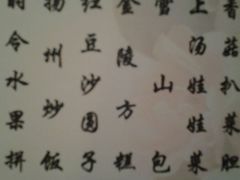 香菇扒菜胆
上汤娃娃菜
雪山包
金陵方糕
红豆沙圆子
扬州炒饭
时令水果拼